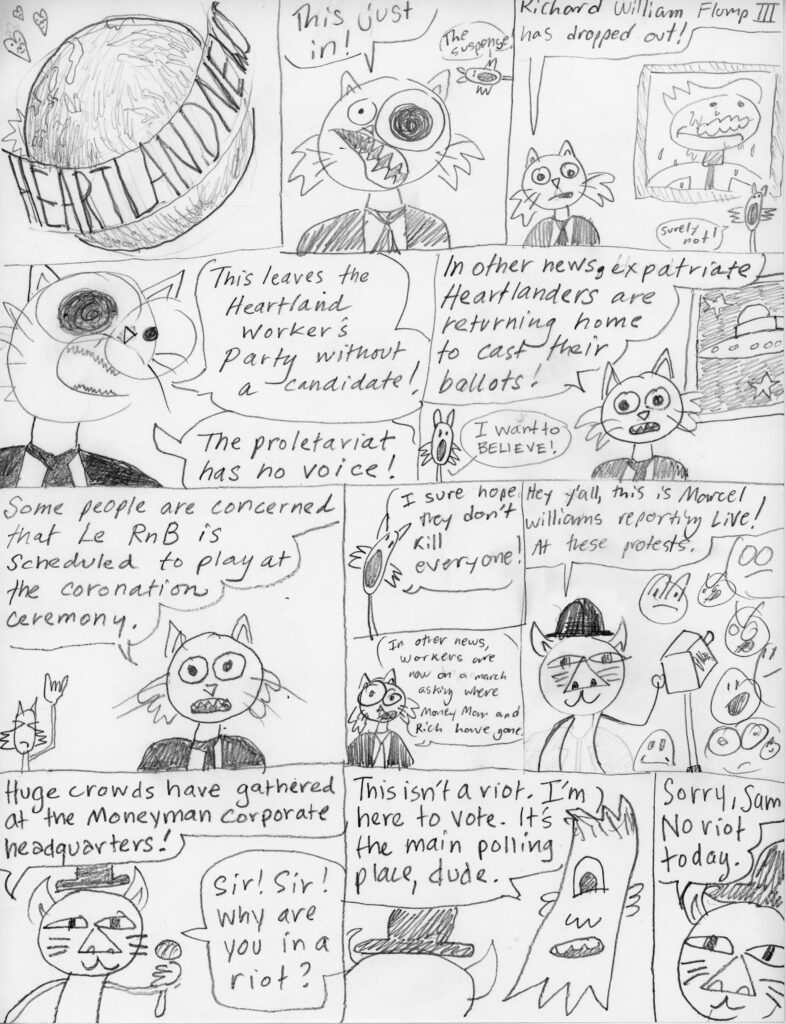 HEARTLAND NEWS
This just
in!
The
suspense!
Richard William Flump III
has dropped out!
Surely
not!
This leaves the
Heartland
Worker's
Party without
a candidate!
The proletariat
has no voice!
In other news, expatriate
Heartlanders are
returning home
to cast their
ballots!
I want to
BELIEVE!
Some people are concerned
that Le RnB is
scheduled to play at
the coronation
ceremony.
I sure hope
they don't
kill
everyone!
In other news,
workers are
now on a march
asking where
Money Man and
Rich have gone.
Hey y'all, this is Marcel
Williams reporting Live!
At these protests.
Huge crowds have gathered
at the Moneyman corporate
headquarters!
Sir! Sir!
Why are
you in a
riot?
This isn't a riot. I'm
here to vote. It's
the main polling
place, dude.
Sorry, Sam
No riot
today.